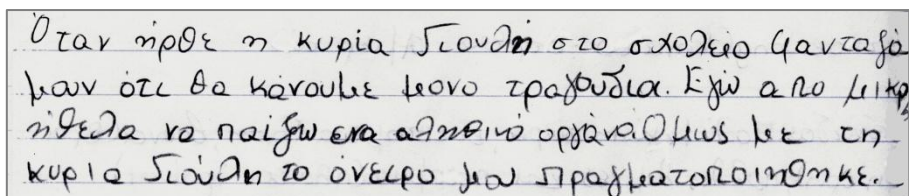 Όταν ήρθε η κυρία Γιούλη στο σχολείο φανταζό
μουν ότι θα κάνουμε μονο τραγούδια. Εγώ απο μικρη
ήθελα να παίξω ενα αληθινό οργάνα Ομως με τη
κυρια Γιούλη το όνειρο μου πραγματοποιήθηκε.